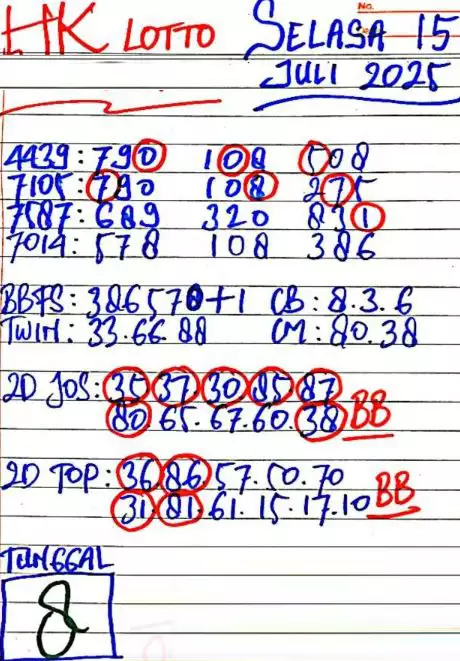 No.
HK LOTTO SELASA 15
JULI 2025
4439 : 790 108 508
7105 : 790 108 275
7587 : 689 320 831
7014 : 578 108 386
BBFS : 386570+1 CB : 8.3.6
TWIN : 33.66.88 CM : 80.38
2D JOS : 35 37 30 85 87
80.65.67.60.38 BB
2D TOP : 36.86.57.50.70
31.81.61.15.17.10 BB
TUNGGAL
8